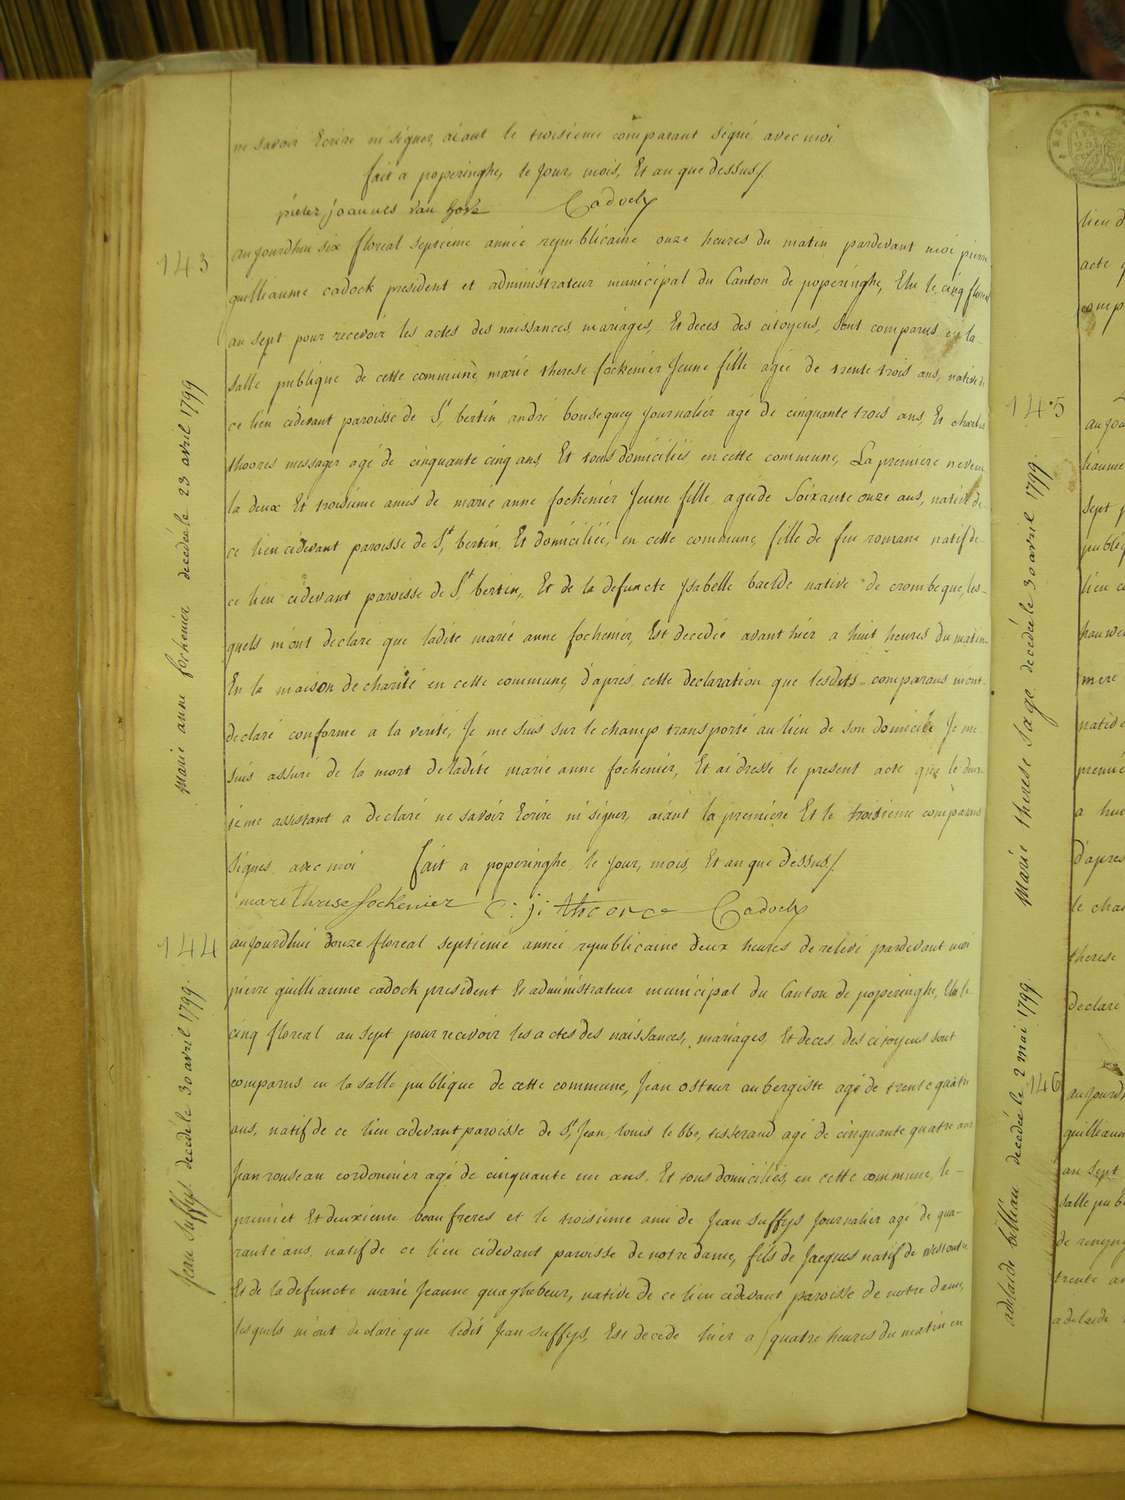 ne savoir Ecrire ni signer, aiant le troisieme comparant signé avec moi
fait a poperinghe, le jour, mois, Et an que dessus/
pieter joannes van hove Cadock
143
aujourdhui six floreal septieme année republicaine onze heures du matin pardevant moi pierre
guilleaume cadock president et administrateur municipal du Canton de poperinghe, Elu le cinq floreal
an sept pour recevoir les actes des naissances, mariages, Et deces des citoyens, sont comparus en la
salle publique de cette commune marie therese fockenier Jeune fille agée de trente trois ans, native de
ce lieu cidevant paroisse de St bertin andré bousequey journalier agé de cinquante trois ans, Et charles
thoores messager agé de cinquante cinq ans, Et tous domiciliés en cette commune, La premiere
la deux Et troisieme amis de marie anne fockenier Jeune fille agée de Soixante onze ans, native de
ce lieu cidevant paroisse de St bertin, Et domiciliée, en cette commune, fille de feu romane natif de
ce lieu cidevant paroisse de St bertin, Et de la defuncte ysabelle baelde native de crombeque, les-
quels m'ont declaré que ladite marie anne fockenier, Est decedée avant hier a huit heures du matin
En la maison de charité en cette commune, d'après cette declaration que lesdits comparans m'ont
declaré conforme a la verité, Je me suis sur le champ transporté au lieu de son domicile Je me
suis assuré de la mort de ladite marie anne fockenier, Et ai dressé le present acte que le deux
ieme assistant a declaré ne savoir Ecrire ni signer, aiant la premiere Et le troisieme comparus
signes avec moi fait a poperinghe le jour, mois, Et an que dessus/
marie therese fockenier C: j: thoores Cadock
marie anne fockenier decedée le 23 avril 1799
144
aujourdhui douze floreal septieme année republicaine deux heures de relevé pardevant moi
pierre guilleaume cadock president Et administrateur municipal du Canton de poperinghe, Elu le
cinq floreal an sept pour recevoir les actes des naissances, mariages, Et deces des citoyens sont
comparus en la salle publique de cette commune, Jean osteur aubergiste agé de trente quatre
ans, natif de ce lieu cidevant paroisse de St Jean, louis lebbe, tisserand agé de cinquante quatre ans
Jean rouseau cordonnier agé de cinquante un ans, Et tous domiciliés en cette commune, le
premier Et deuxieme beau freres et le troisieme ami de Jean suffys Journalier agé de qua-
rante ans, natif de ce lieu cidevant paroisse de notre dame, fils de Jacques natif de westoutre
Et de la defuncte marie Jeanne quaghebeur, native de ce lieu cidevant paroisse de notre dame,
lesquels m'ont declaré que ledit Jean suffys, Est decedé hier a quatre heures du matin en
Jean suffys decedé le 30 avril 1799
145
Marie therese sago decedée le 30 avril 1799
lieu d
acte
comp
aujou
sept p
publiq
lieu c
mere
native
premie
a hui
d'apres
le cha
therese
declare
146
adelaide billiau decedée le 2 mai 1799
aujourd
guilleaum
an sept
salle pub
trente an
adelaide